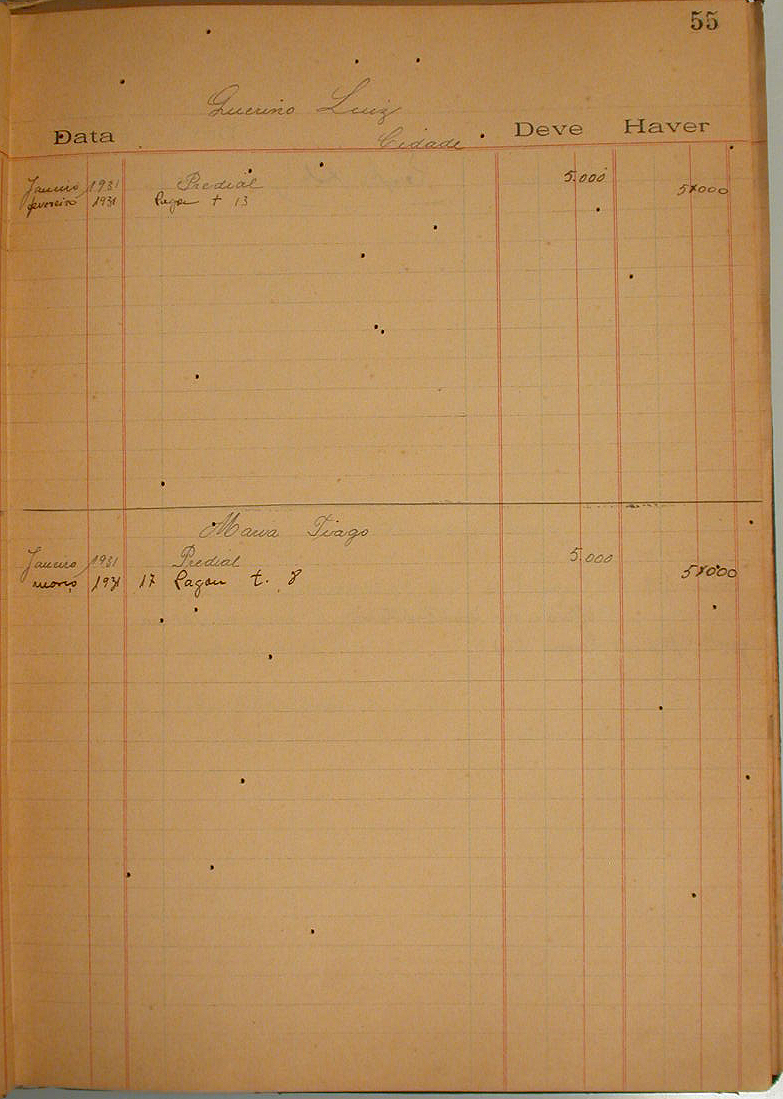 55
Guerino Luiz
Data Cidade Deve Haver
Janeiro 1931 Predial 5.000
fevereiro 1931 Pagou t 13 5$000
Maria Tiago
Janeiro 1931 Predial 5.000
março 1931 17 Pagou t. 8 5$000